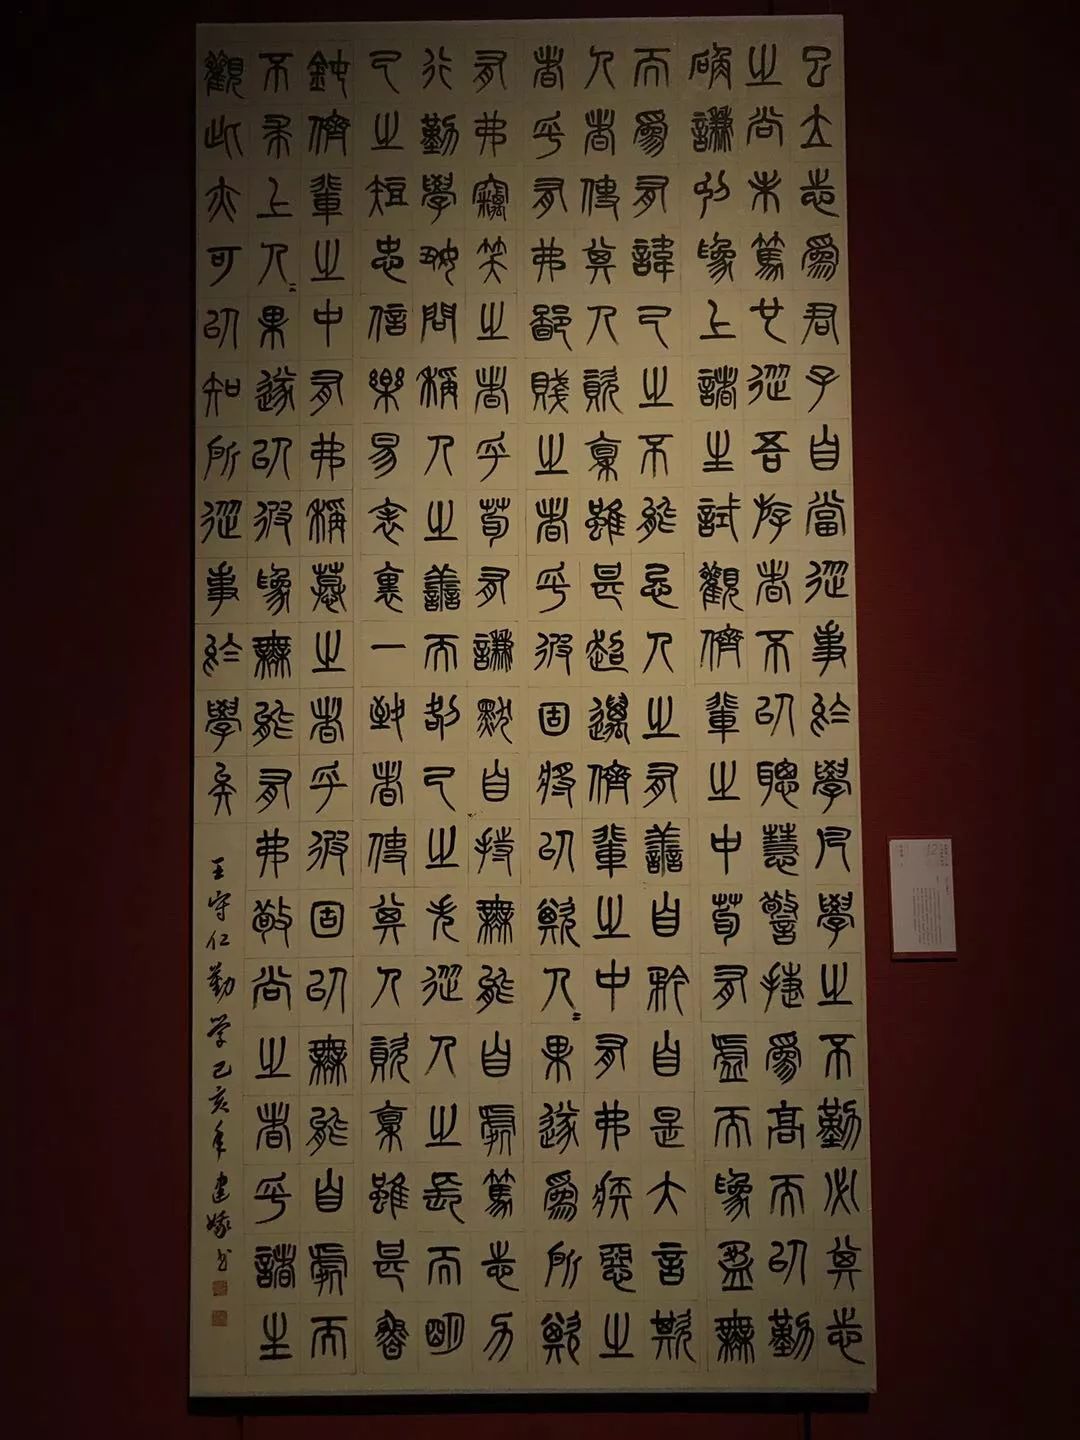 已立志爲君子自當從事於學凡學之不勤必其志
之尚未篤也從吾游者不以聰慧警捷爲高而以勤
確謙抑爲上諸生試觀儕輩之中苟有虛而爲盈無
而爲有諱己之不能忌人之有善自矜自是大言欺
人者使其人資稟雖甚超邁儕輩之中有弗疾惡之
者乎有弗鄙賤之者乎彼固將以欺人〻果遂爲所欺
有弗竊笑之者乎苟有謙默自持無能自處篤志力
行勤學好問稱人之善而咎己之失從人之長而明
己之短忠信樂易表裏一致者使其人資稟雖甚魯
鈍儕輩之中有弗稱慕之者乎彼固以無能自處而
不求上人〻果遂以彼爲無能有弗敬尚之者乎諸生
觀此亦可以知所從事於學矣
王守仁勤学己亥年建书